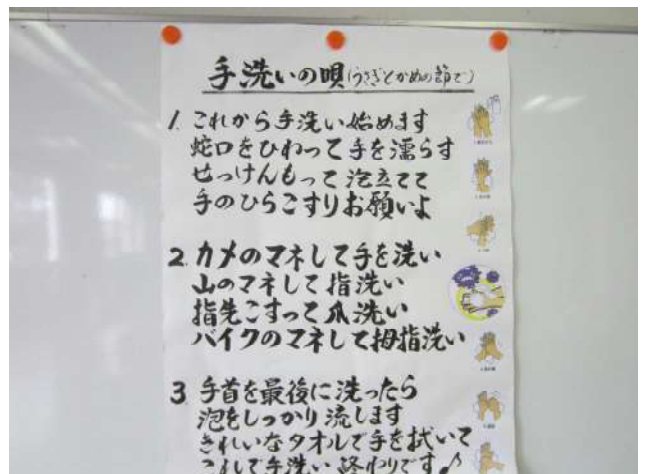 手洗いの唄(うさぎとかめの節で)
1. これから手洗い始めます
蛇口をひねって手を濡らす
せっけんもって泡立てて
手のひらこすりお願いよ
2. カメのマネして手を洗い
山のマネして指洗い
指先こすって爪洗い
バイクのマネして拇指洗い
3 手首を最後に洗ったら
泡をしっかり流します
きれいなタオルで手を拭いて
これで手洗い終わりです♪